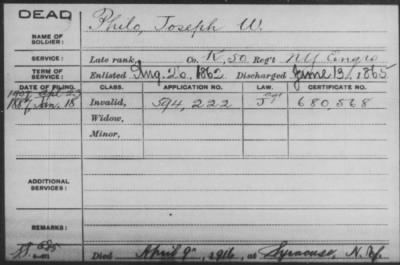 DEAD
Philo, Joseph W.
NAME OF SOLDIER:
SERVICE: Late rank, Co. K, 50 Reg't NY Engrs
TERM OF SERVICE: Enlisted Aug. 20, 1862 Discharged June 13, 1865
DATE OF FILING. CLASS. APPLICATION NO. LAW. CERTIFICATE NO.
1887 Jan. 18 Invalid, 594,222 680,568
Widow,
Minor,
ADDITIONAL SERVICES:
REMARKS:
Died April 9, 1916, at Syracuse, N.Y.